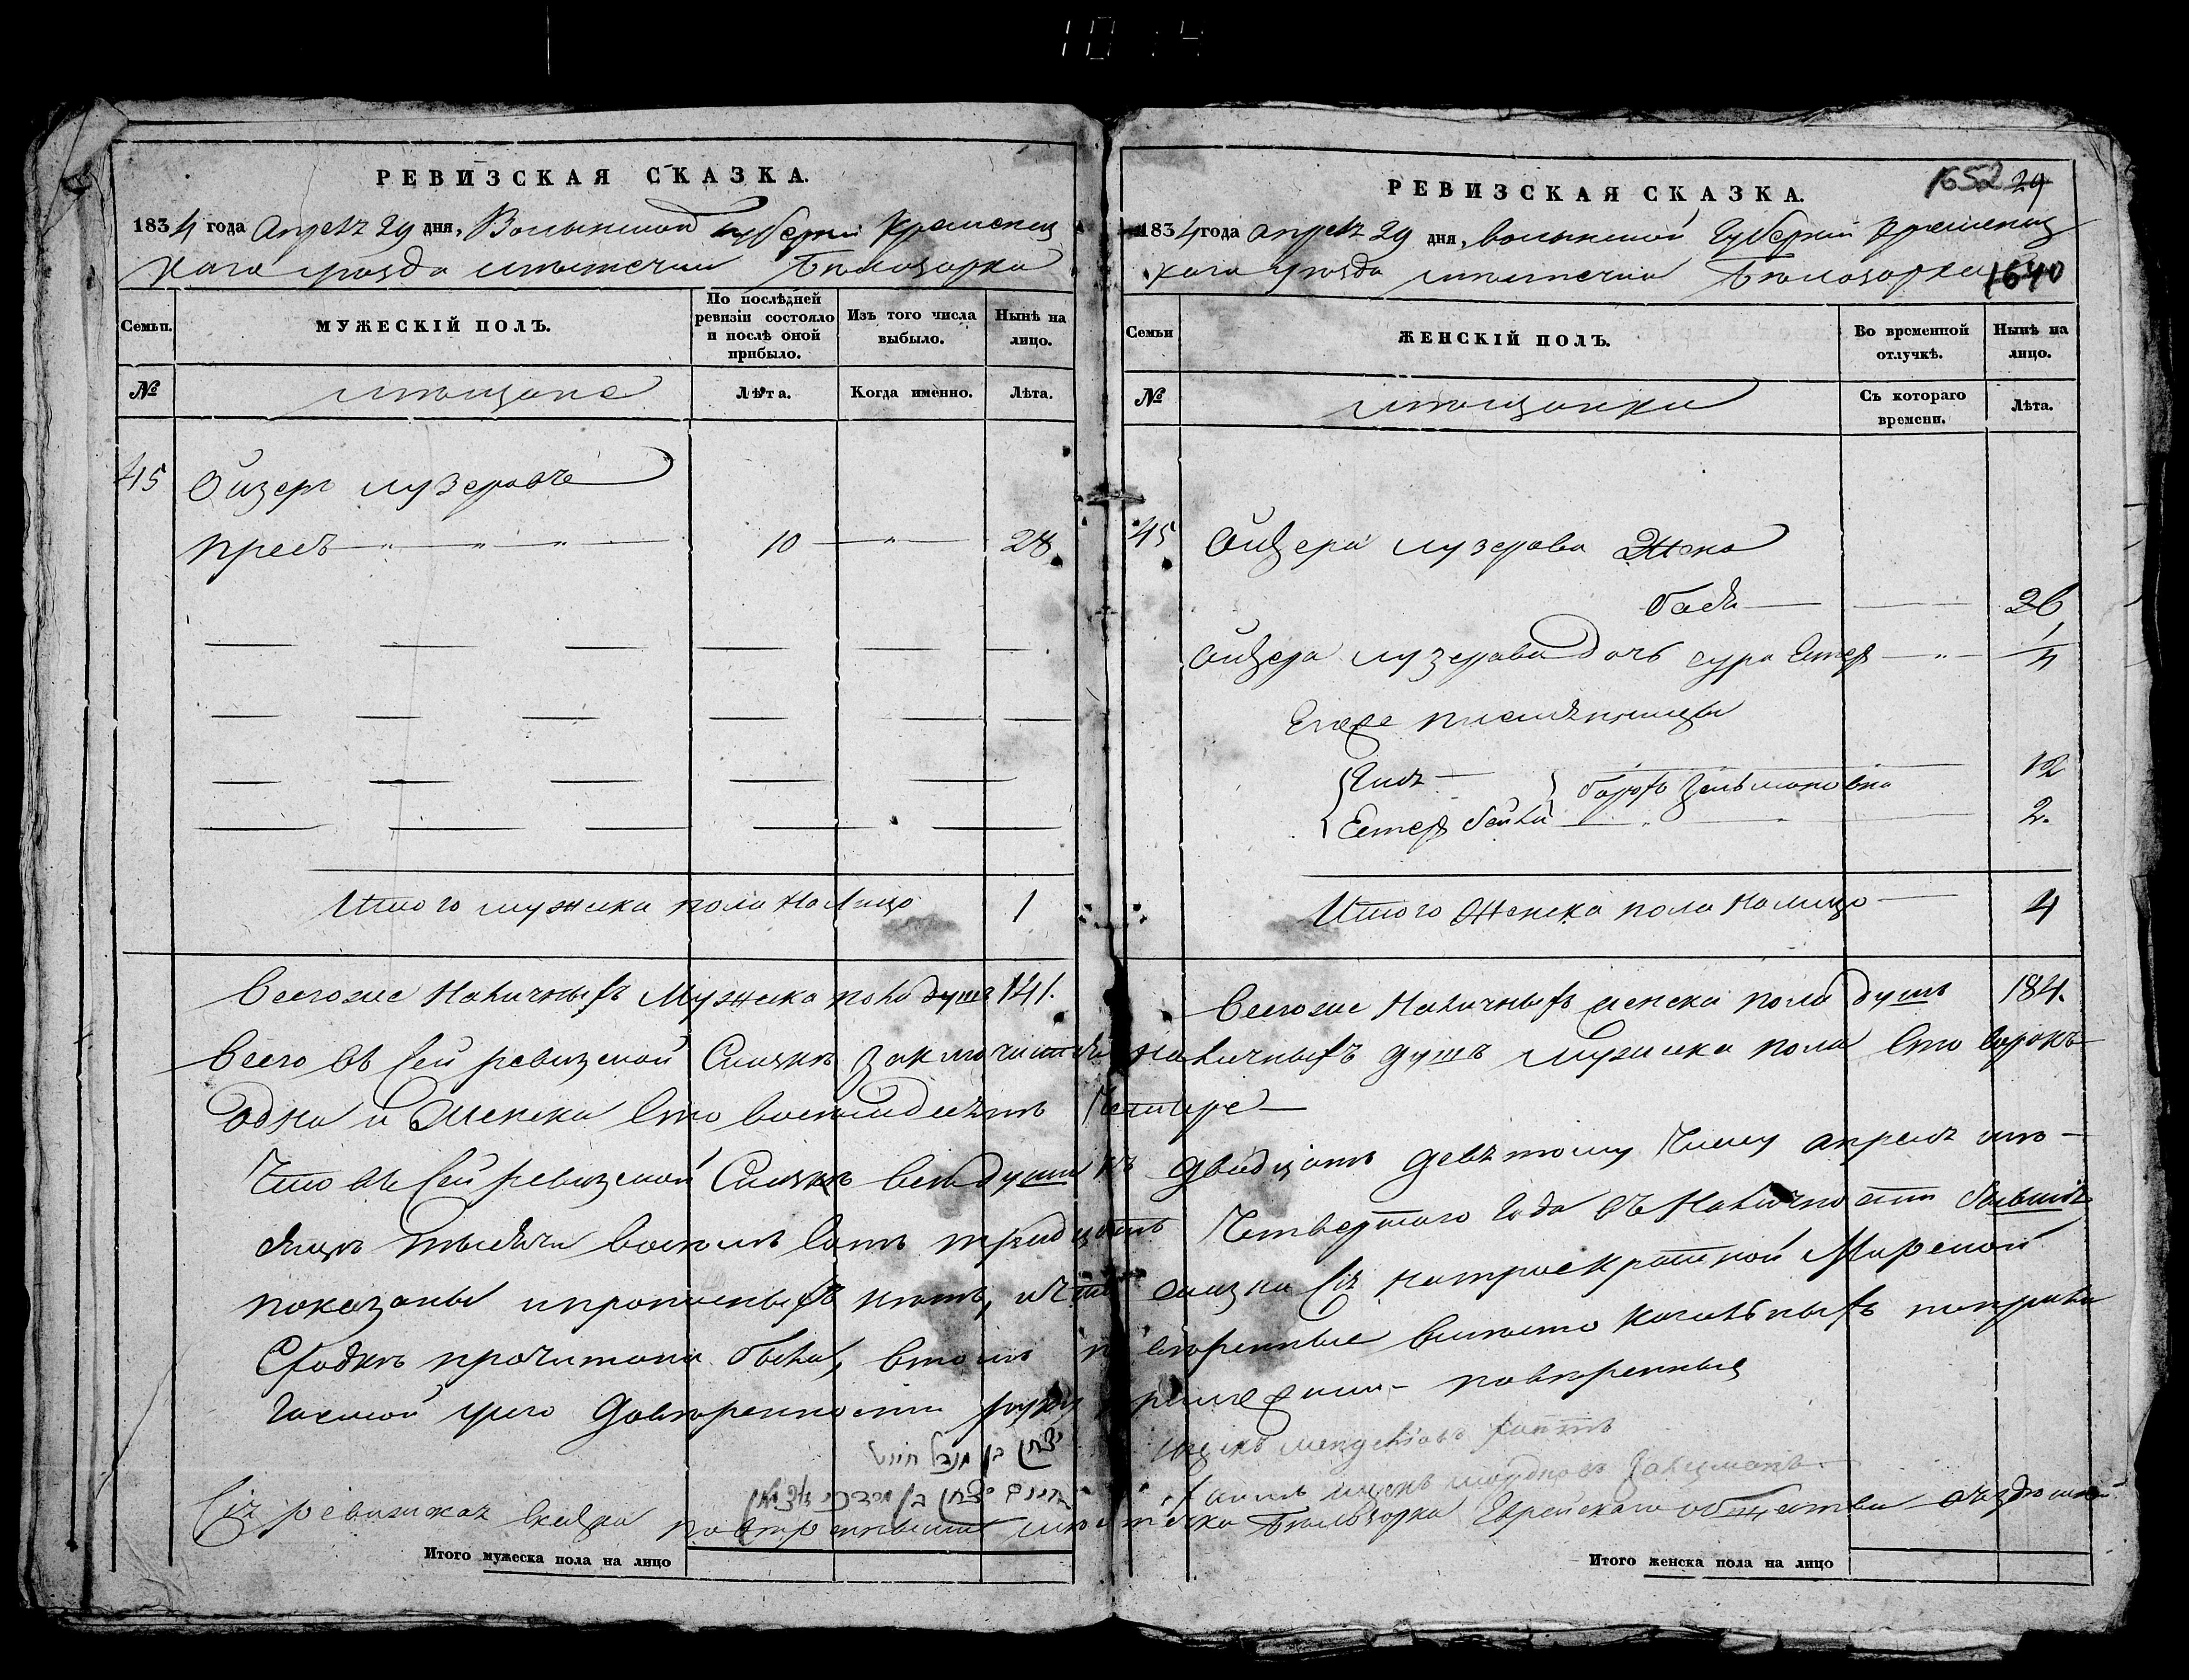 10 14
РЕВИЗСКАЯ СКАЗКА.
1834 года Апреля 29 дня, Волынской Губернии Кременец
каго уезда местечка Белозорки
Семьи.
МУЖЕСКІЙ ПОЛЪ.
По послѣдней ревизіи состояло и послѣ оной прибыло.
Изъ того числа выбыло.
Нынѣ на лицо.
№
мещане
Лѣта.
Когда именно.
Лѣта.
45
Ойзеръ лузеровъ
пресъ 10 28
Итого мужска пола налицо 1
Всего же наличныхъ мужска пола душъ 141.
1652 29
РЕВИЗСКАЯ СКАЗКА.
1834 года апреля 29 дня, волынской Губернии Кременец
каго уезда местечка Белозорки
1640
Семьи
ЖЕНСКІЙ ПОЛЪ.
Во временной отлучкѣ.
Нынѣ на лицо.
№
мещанки
Съ котораго времени.
Лѣта.
45
Ойзера лузерова жена
бася 26
Ойзера лузерова дочь сура Естер 1/4
Его же племянницы
12
Естер бейла 2.
Итого женска пола налицо 4
Всего же наличныхъ женска пола душъ 184.
Всего въ сей ревизской сказке заключается наличныхъ душъ мужска пола сто сорокъ
одна и женска сто восемьдесятъ четыре
Что въ сей ревизской сказке все души къ двадцать девятому числу апреля
тысяча восемь сотъ тридцать четвертаго года въ наличности бывшія
показаны и прописныхъ нетъ, и что сказка сія на троекратной мирской
сходке прочитана была, въ томъ поверенные вместо кагальныхъ
по данной имъ доверенности руку приложили поверенные
יצחק בן מנדל
חיים יצחק בן מרדכי
Сія ревизская сказка поверенными местечка Белозорки Еврейскаго общества
Итого мужеска пола на лицо
Итого женска пола на лицо